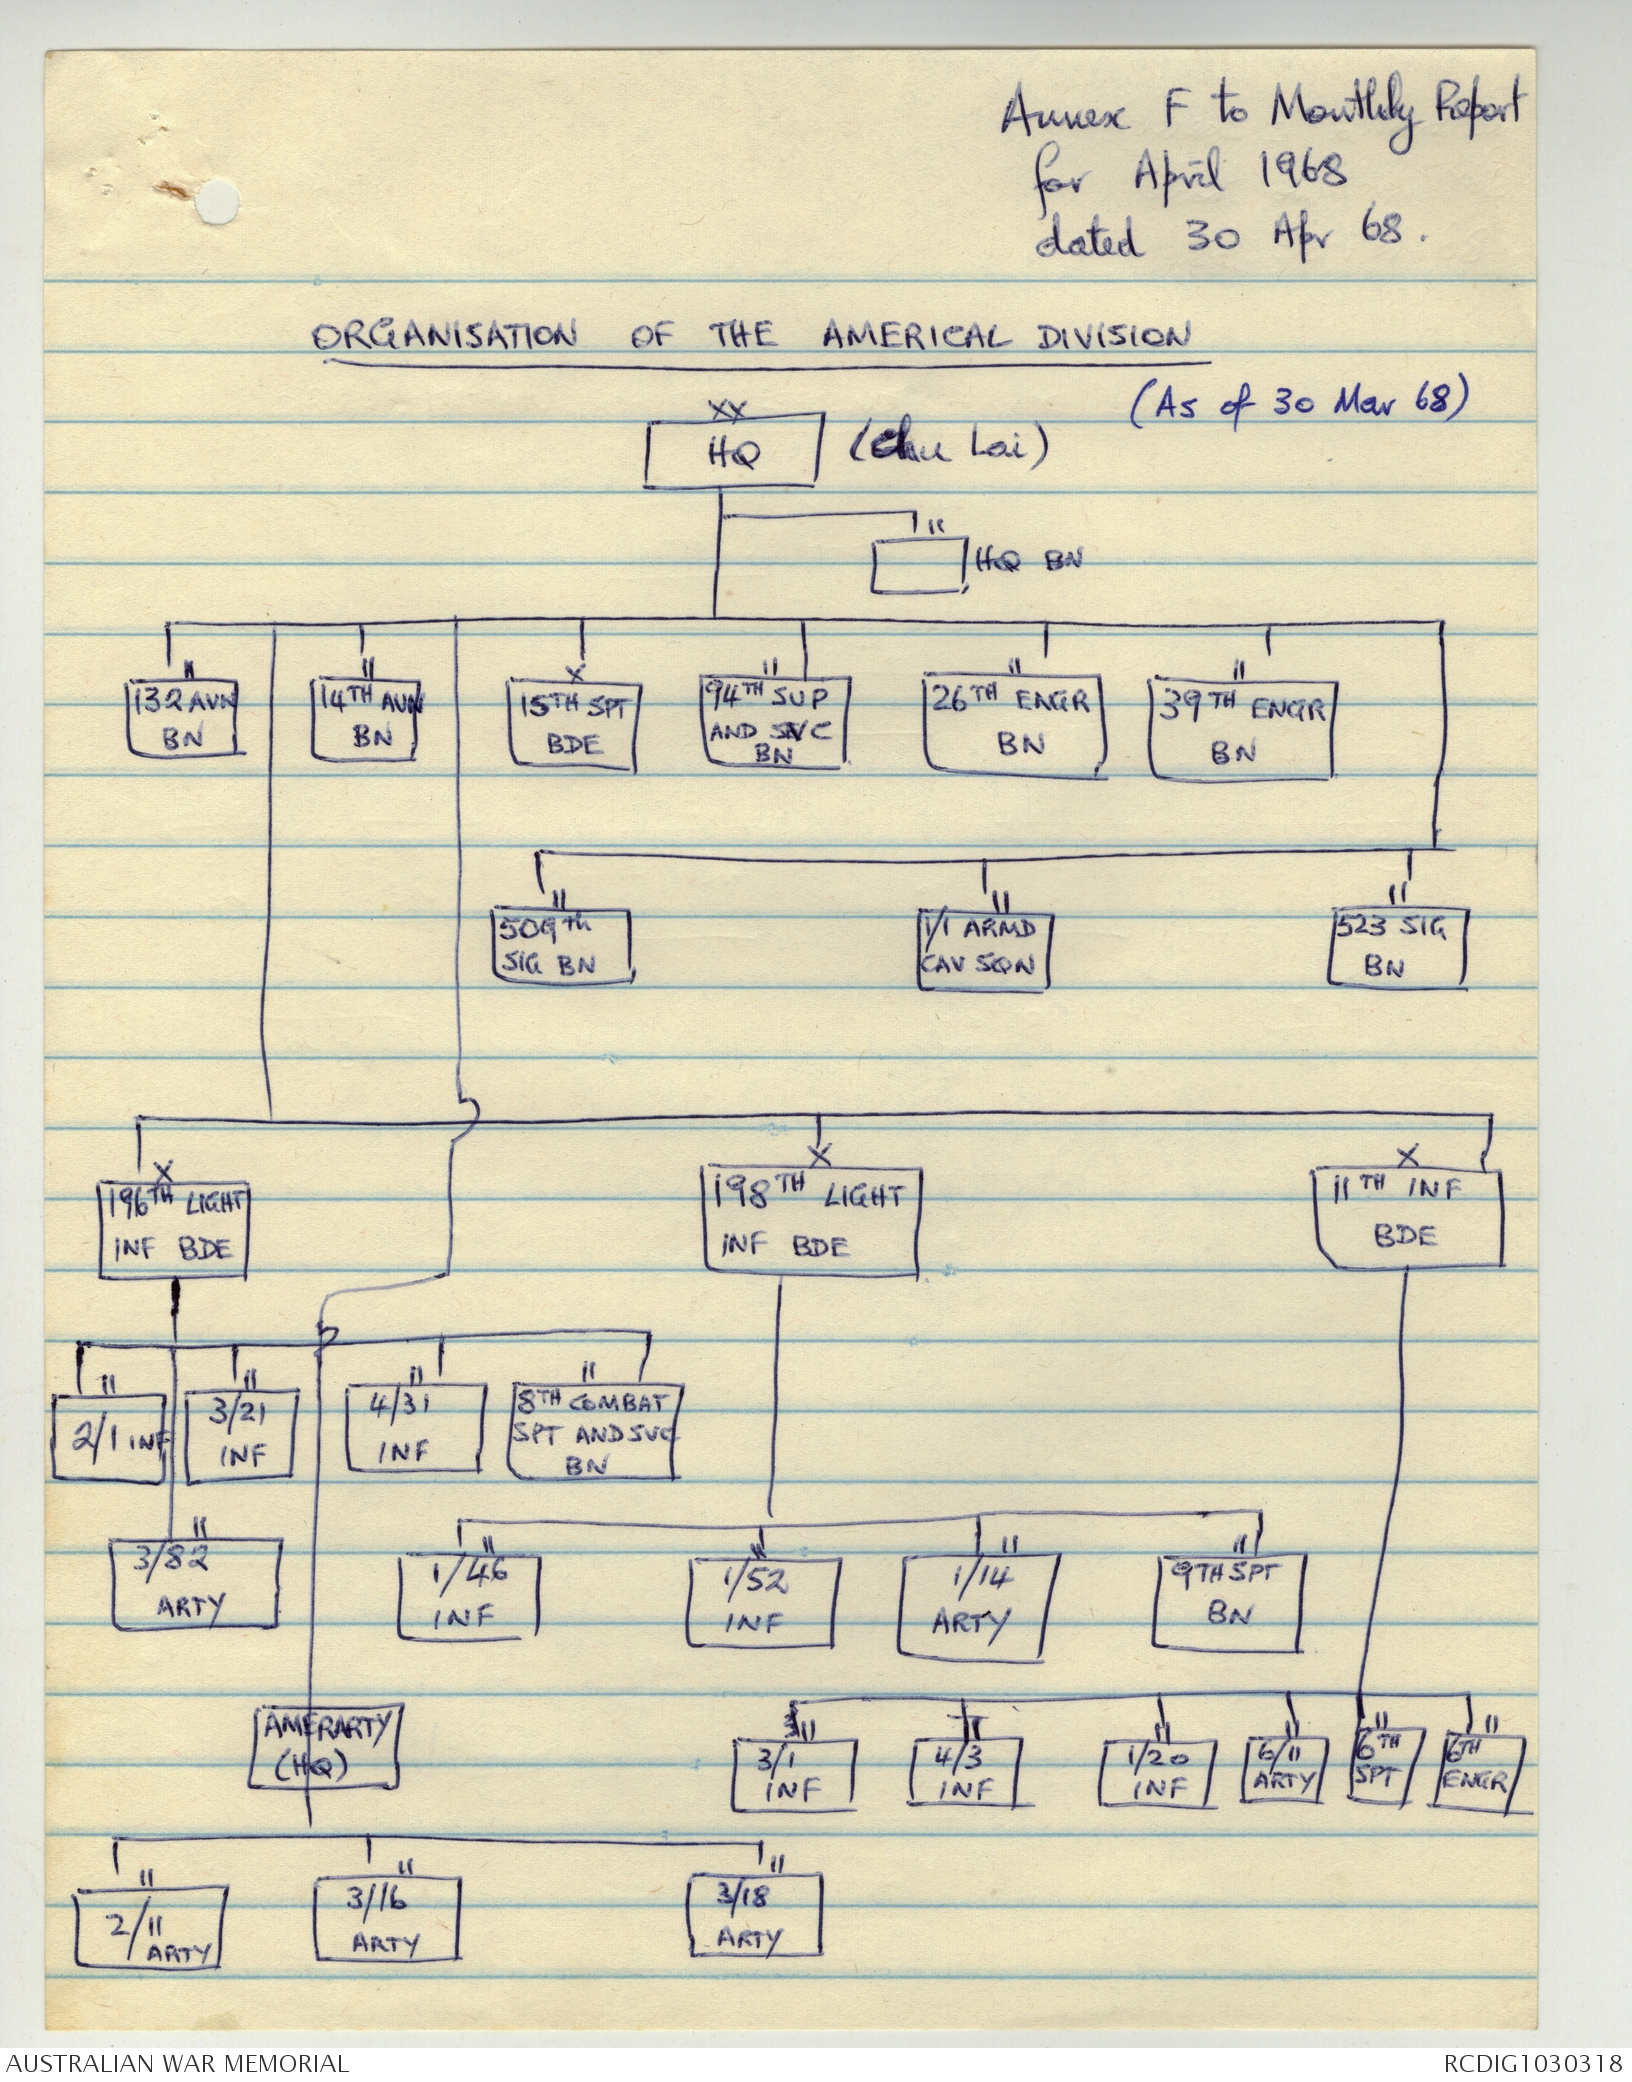 Annex F to Monthly Report
for April 1968
dated 30 Apr 68.
ORGANISATION OF THE AMERICAL DIVISION
(As of 30 Mar 68)
XX
HQ (Chu Lai)
II
HQ BN
II II X II II II
132 AVN BN
14TH AVN BN
15TH SPT BDE
94TH SUP AND SVC BN
26TH ENGR BN
39TH ENGR BN
II II II
509th SIG BN
1/1 ARMD CAV SQN
523 SIG BN
X X X
196TH LIGHT INF BDE
198TH LIGHT INF BDE
11TH INF BDE
II II II II
2/1 INF
3/21 INF
4/31 INF
8TH COMBAT SPT AND SVC BN
II II II II II
3/82 ARTY
1/46 INF
1/52 INF
1/14 ARTY
9TH SPT BN
AMERARTY (HQ)
II II II II II II
3/1 INF
4/3 INF
1/20 INF
6/11 ARTY
6TH SPT
6TH ENGR
II II II
2/11 ARTY
3/16 ARTY
3/18 ARTY
AUSTRALIAN WAR MEMORIAL
RCDIG1030318